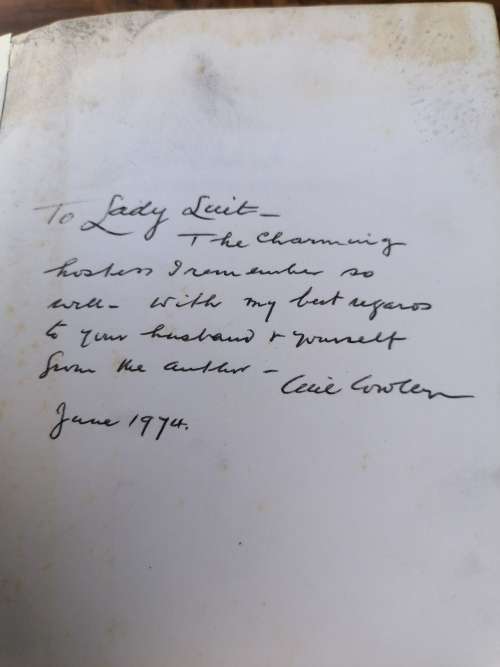 To Lady Luit –
The Charming
hostess I remember so
well – with my best regards
to your husband & yourself
from the author –
Cecil Cowley
June 1974.